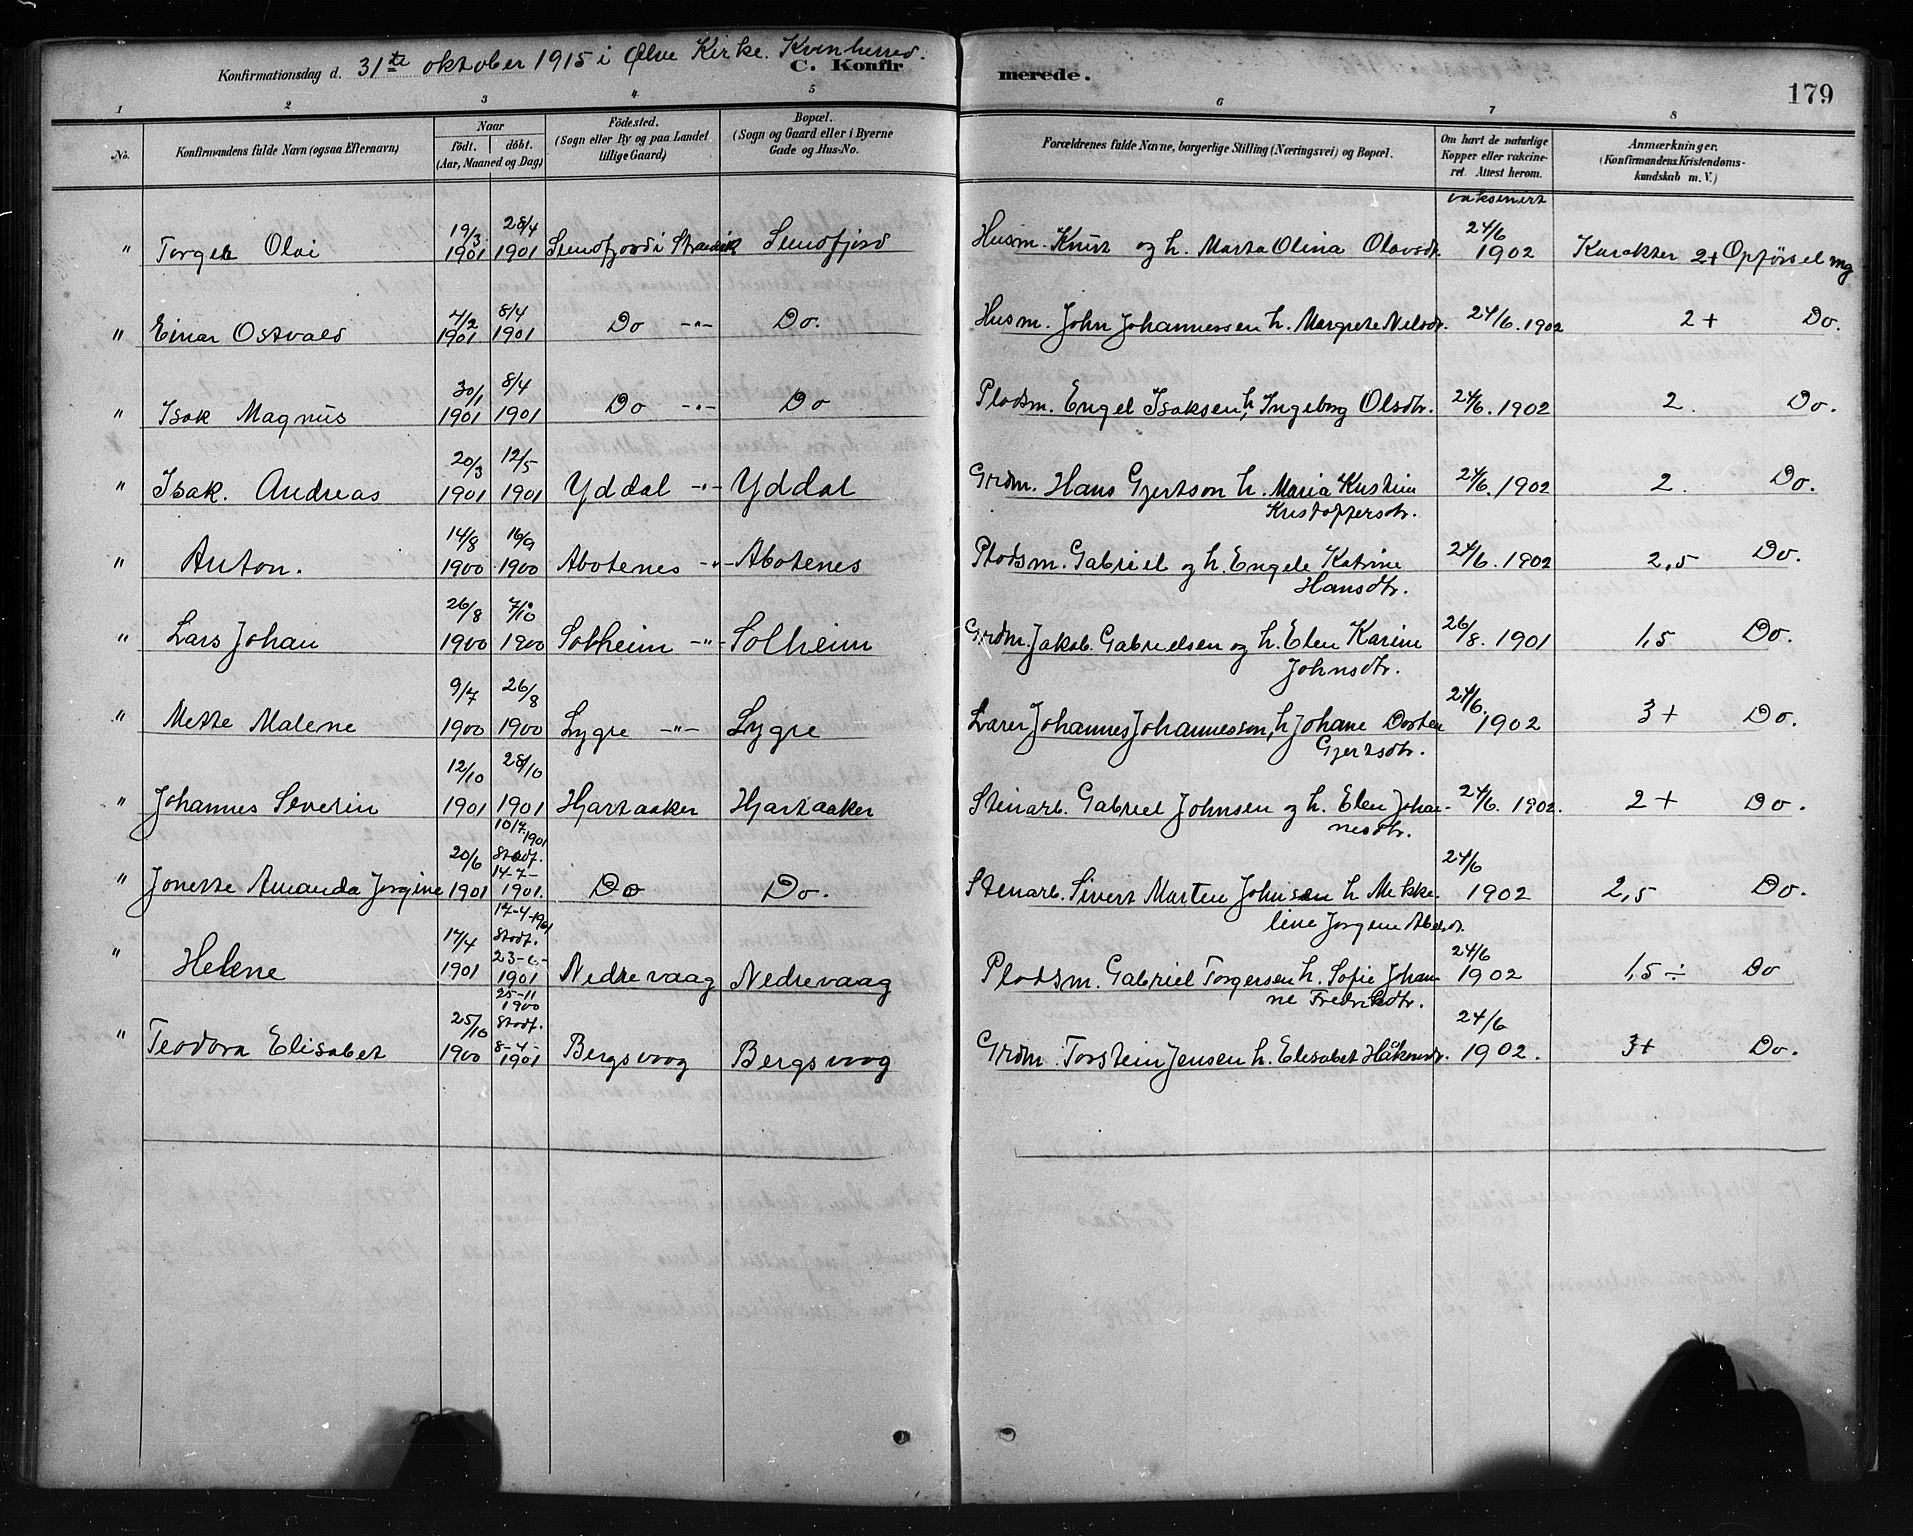 Konfirmationsdag d. 31te oktober 1915 i Ølve Kirke. Kvinherred.
C. Konfirmerede.
179
1 2 3 4 5 6 7 8
No.
Konfirmandens fulde Navn (ogsaa Efternavn)
Naar
födt. döbt.
(Aar, Maaned og Dag)
Födested.
(Sogn eller By og paa Landet
tillige Gaard)
Bopæl.
(Sogn og Gaard eller i Byerne
Gade og Hus-No.
Forældrenes fulde Navne, borgerlige Stilling (Næringsvei) og Bopæl.
Om havt de naturlige
Kopper eller vakcine-
ret. Attest herom.
Anmærkninger.
(Konfirmandens Kristendoms-
kundskab m. V.)
vaksinert
" 19/3 1901 28/4 1901 Husm. Knut og h. Marta Olina Olavsdt. 24/6 1902 Karakter 2+ Opførsel mg
" Einar Ostvald 7/2 1901 8/4 1901 Do -"- Do. Husm. John Johannessen h. Margrete Nelsdt. 24/6. 1902 2+ Do.
" Isak Magnus 30/1 1901 8/4 1901 Do -"- Do Pladsm. Engel Isaksen, h Ingeborg Olsdtr. 24/6. 1902 2. Do.
" Isak. Andreas 20/3 1901 12/5 1901 Yddal -"- Yddal Grdm. Hans Gjertson h. Maria Kristin
Kristoffersdtr. 24/6. 1902 2. Do.
" Anton. 14/8 1900 16/9 1900 Abotenes -"- Abotenes Pladsm. Gabriel og h. Engele Katrine
Hansdtr. 24/6. 1902 2,5 Do.
" Lars Johan 26/8 1900 7/10 1900 Solheim -"- Solheim Grdm. Jakob Gabrielsen og h. Elen Karine
Johnsdtr. 26/8. 1901 1,5 Do.
" Mette Malene 9/7 1900 26/8 1900 Lygre -"- Lygre Lærer Johannes Johannesson, h Johane Dorten
Gjertsdtr. 24/6. 1902 3+ Do.
" Johannes Severin 12/10 1901 28/10 1901 Hjartaaker Hjartaaker Stenarb. Gabriel Johnsen og h. Elen Johan-
nesdtr. 24/6. 1902. 2+ Do.
" Jonette Amanda Jorgine 20/6 1901 10/7 1901 Stadf. 14-7- 1901. Do Do. Stenarb. Sivert Marten Johnsen h Mekke-
line Jorgine 24/6 1902 2,5 Do.
" Helene 17/4 1901 17-4-1901 Stadf. 1901 Nedrevaag Nedrevaag Pladsm. Gabriel Torgersen h. Sofie Johan
ne Fredriksdtr. 24/6 1902 1,5 ÷ Do
" Teodora Elisabet 25/10 1900 25-11 1900 Stadf. 8-4- 1901 Bergsvaag Bergsvaag Grdm. Torstein Jensen h. Elisabet Håkonsdt. 24/6 1902. 3+ Do.